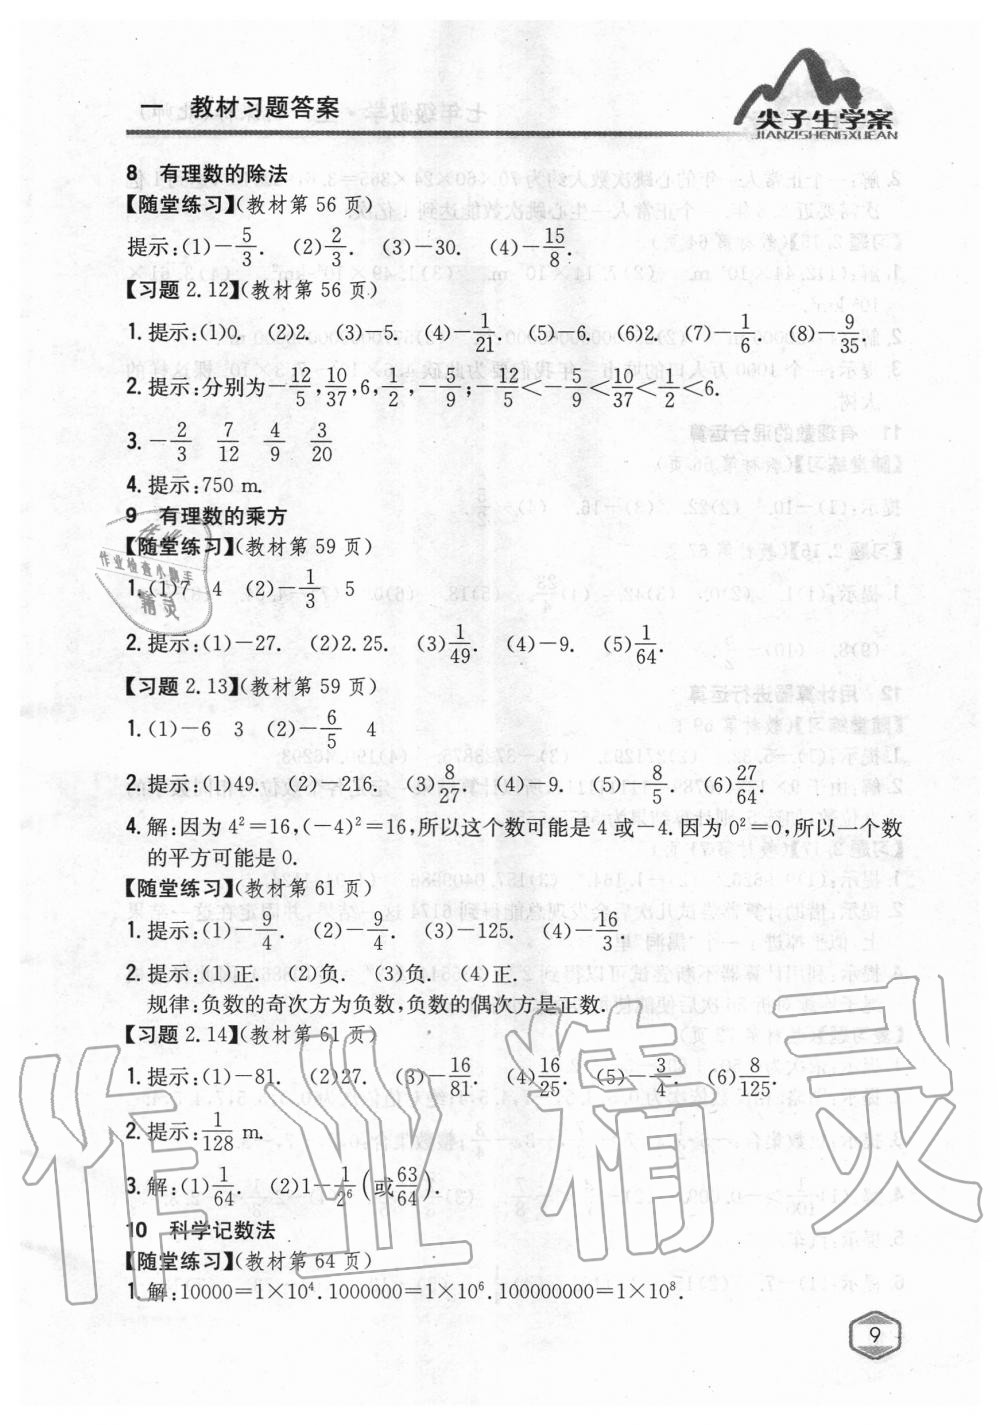 一 教材习题答案
尖子生学案
JIANZISHENGXUEAN
8 有理数的除法
【随堂练习】(教材第 56 页)
提示:(1)-5/3. (2)2/3. (3)-30. (4)-15/8.
【习题 2.12】(教材第 56 页)
1. 提示:(1)0. (2)2. (3)-5. (4)-1/21. (5)-6. (6)2. (7)-1/6. (8)-9/35.
2. 提示:分别为-12/5,10/37,6,1/2,-5/9;-12/5<-5/9<10/37<1/2<6.
3. -2/3 7/12 4/9 3/20
4. 提示:750 m.
9 有理数的乘方
【随堂练习】(教材第 59 页)
1. (1)7 4 (2)-1/3 5
2. 提示:(1)-27. (2)2.25. (3)1/49. (4)-9. (5)1/64.
【习题 2.13】(教材第 59 页)
1. (1)-6 3 (2)-6/5 4
2. 提示:(1)49. (2)-216. (3)8/27. (4)-9. (5)-8/5. (6)27/64.
4. 解:因为 4²=16,(-4)²=16,所以这个数可能是 4 或-4. 因为 0²=0,所以一个数
的平方可能是 0.
【随堂练习】(教材第 61 页)
1. 提示:(1)-9/4. (2)-9/4. (3)-125. (4)-16/3.
2. 提示:(1)正. (2)负. (3)负. (4)正.
规律:负数的奇次方为负数,负数的偶次方是正数.
【习题 2.14】(教材第 61 页)
1. 提示:(1)-81. (2)27. (3)-16/81. (4)16/25. (5)-3/4. (6)8/125.
2. 提示:1/128 m.
3. 解:(1)1/64. (2)1-1/2⁶(或63/64).
10 科学记数法
【随堂练习】(教材第 64 页)
1. 解:10000=1×10⁴. 1000000=1×10⁶. 100000000=1×10⁸.
9
作业
作业检查小助手
精灵
作业精灵